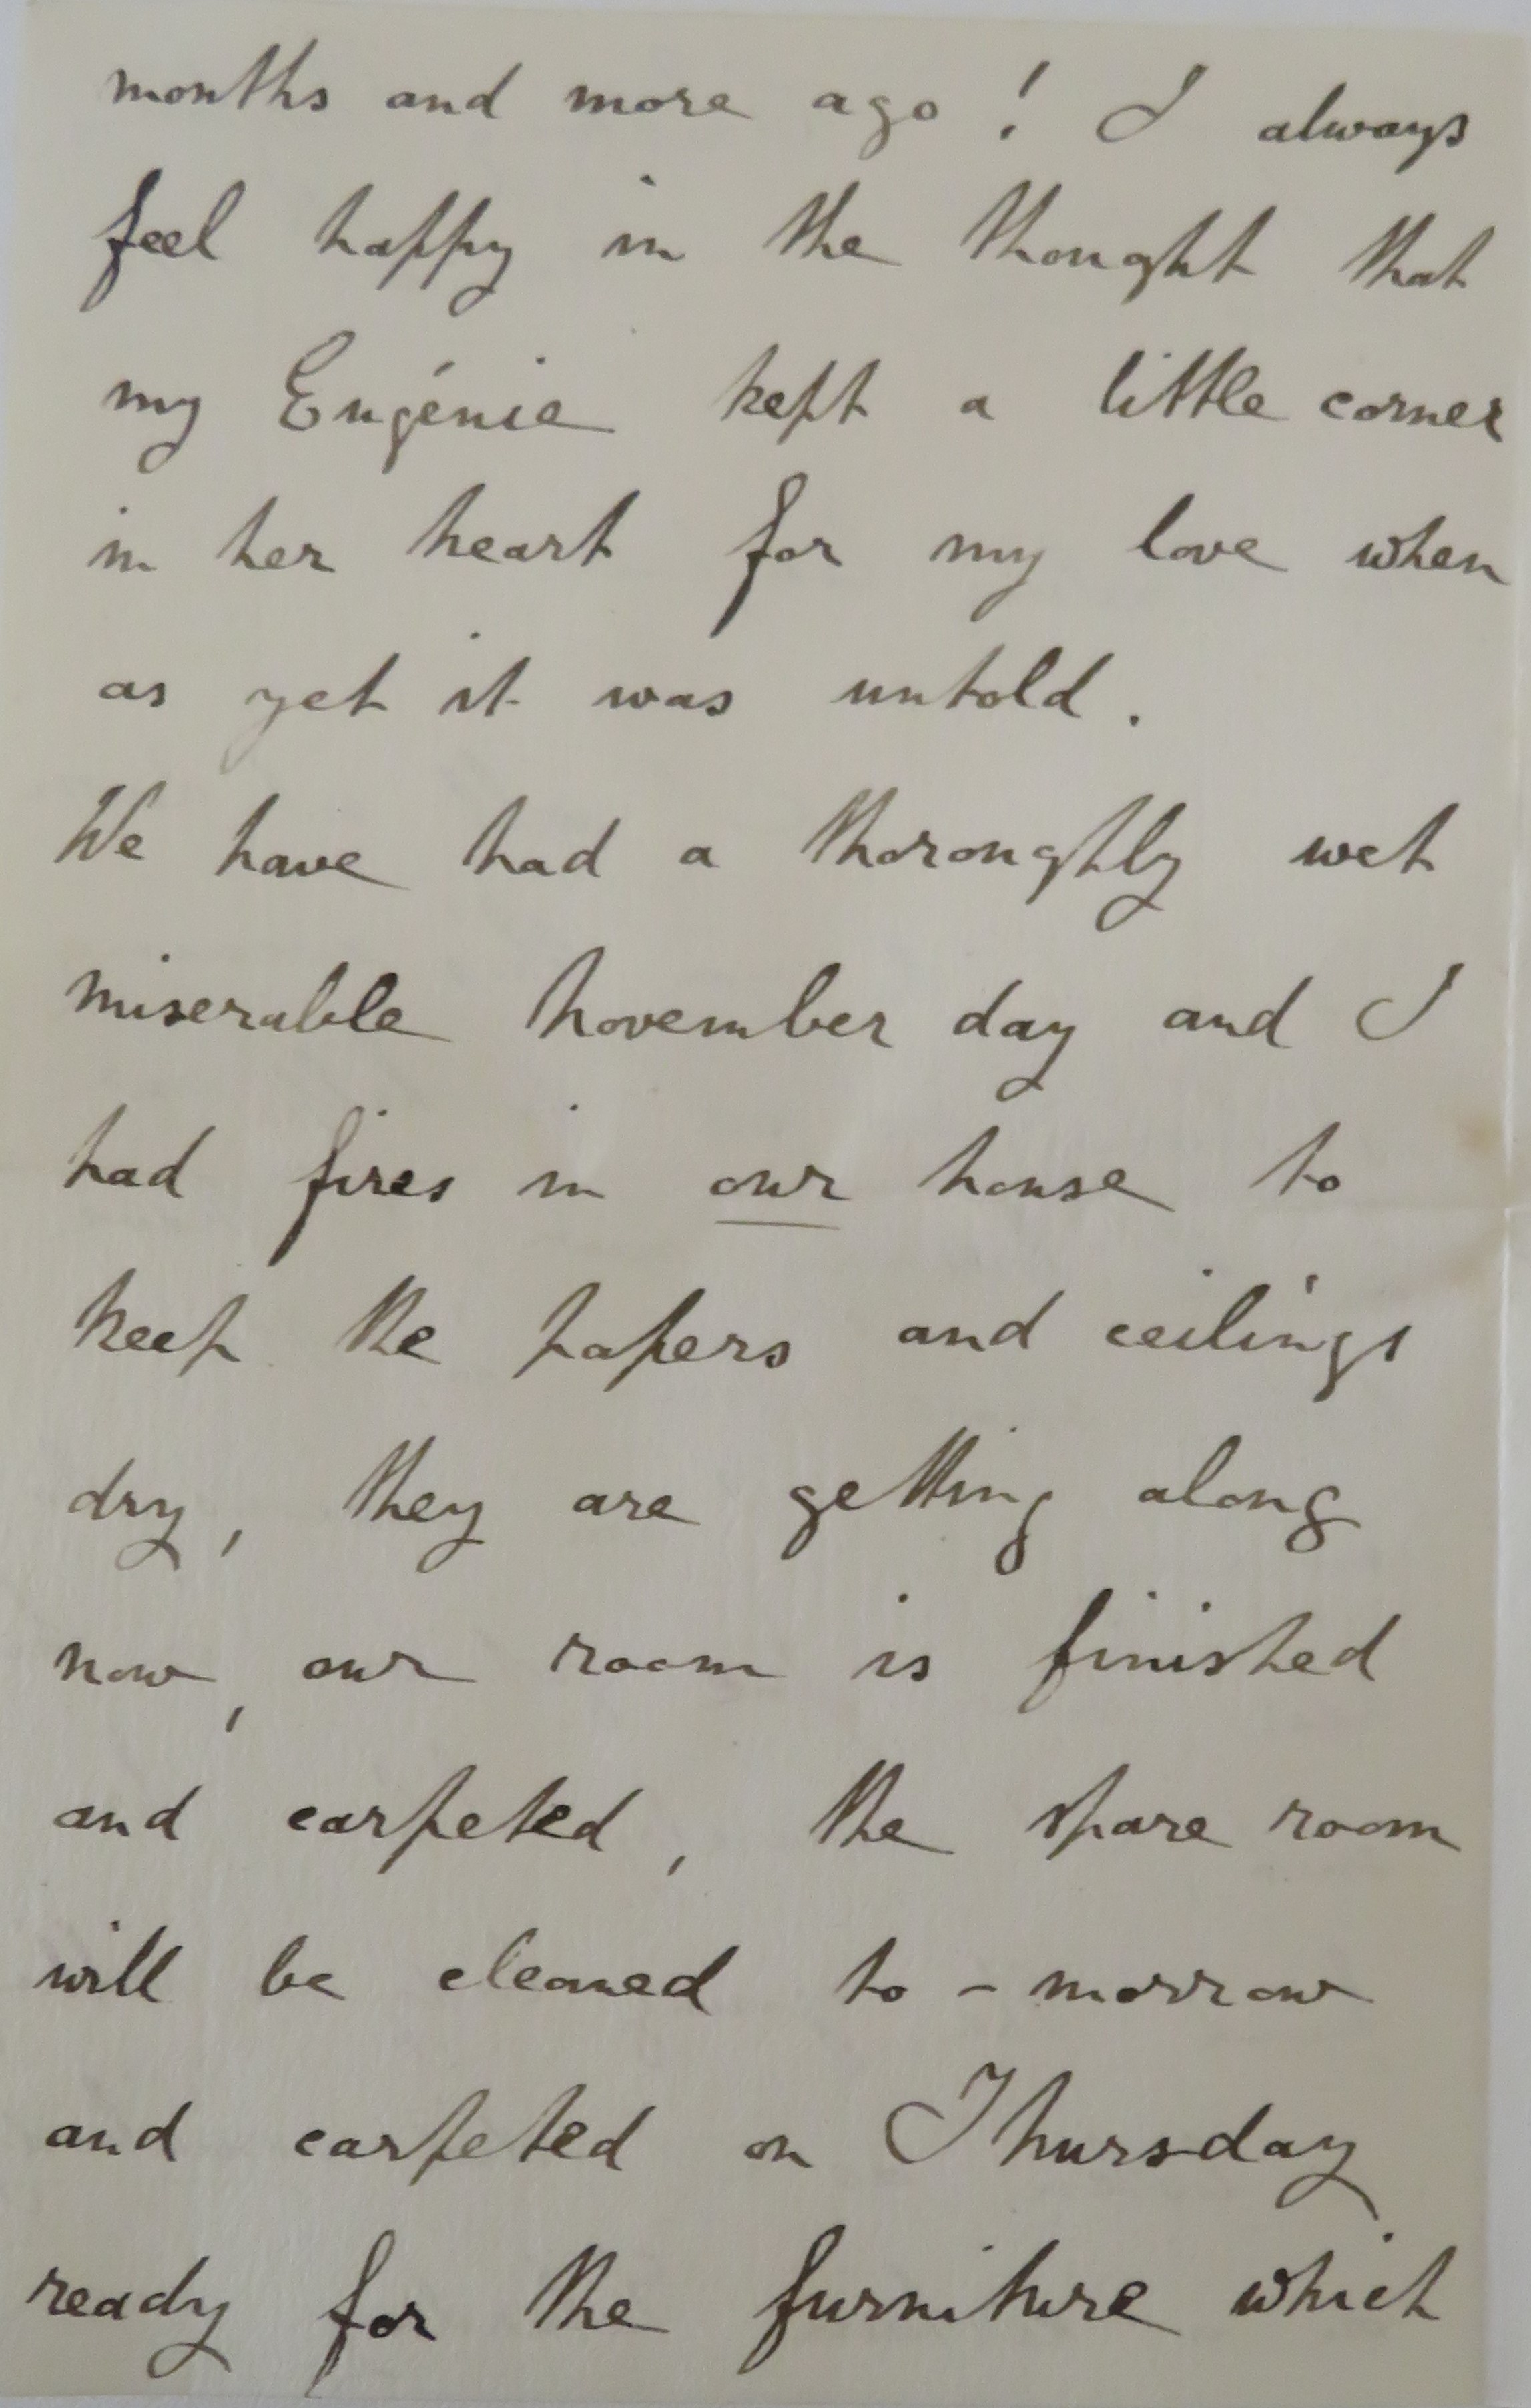 months and more ago! I always
feel happy in the thought that
my Eugénie kept a little corner
in her heart for my love when
as yet it was untold.
We have had a thoroughly wet
miserable November day and I
had fires in our house to
keep the papers and ceilings
dry, they are getting along
now, our room is finished
and carpeted, the spare room
will be cleaned to-morrow
and carpeted on Thursday
ready for the furniture which